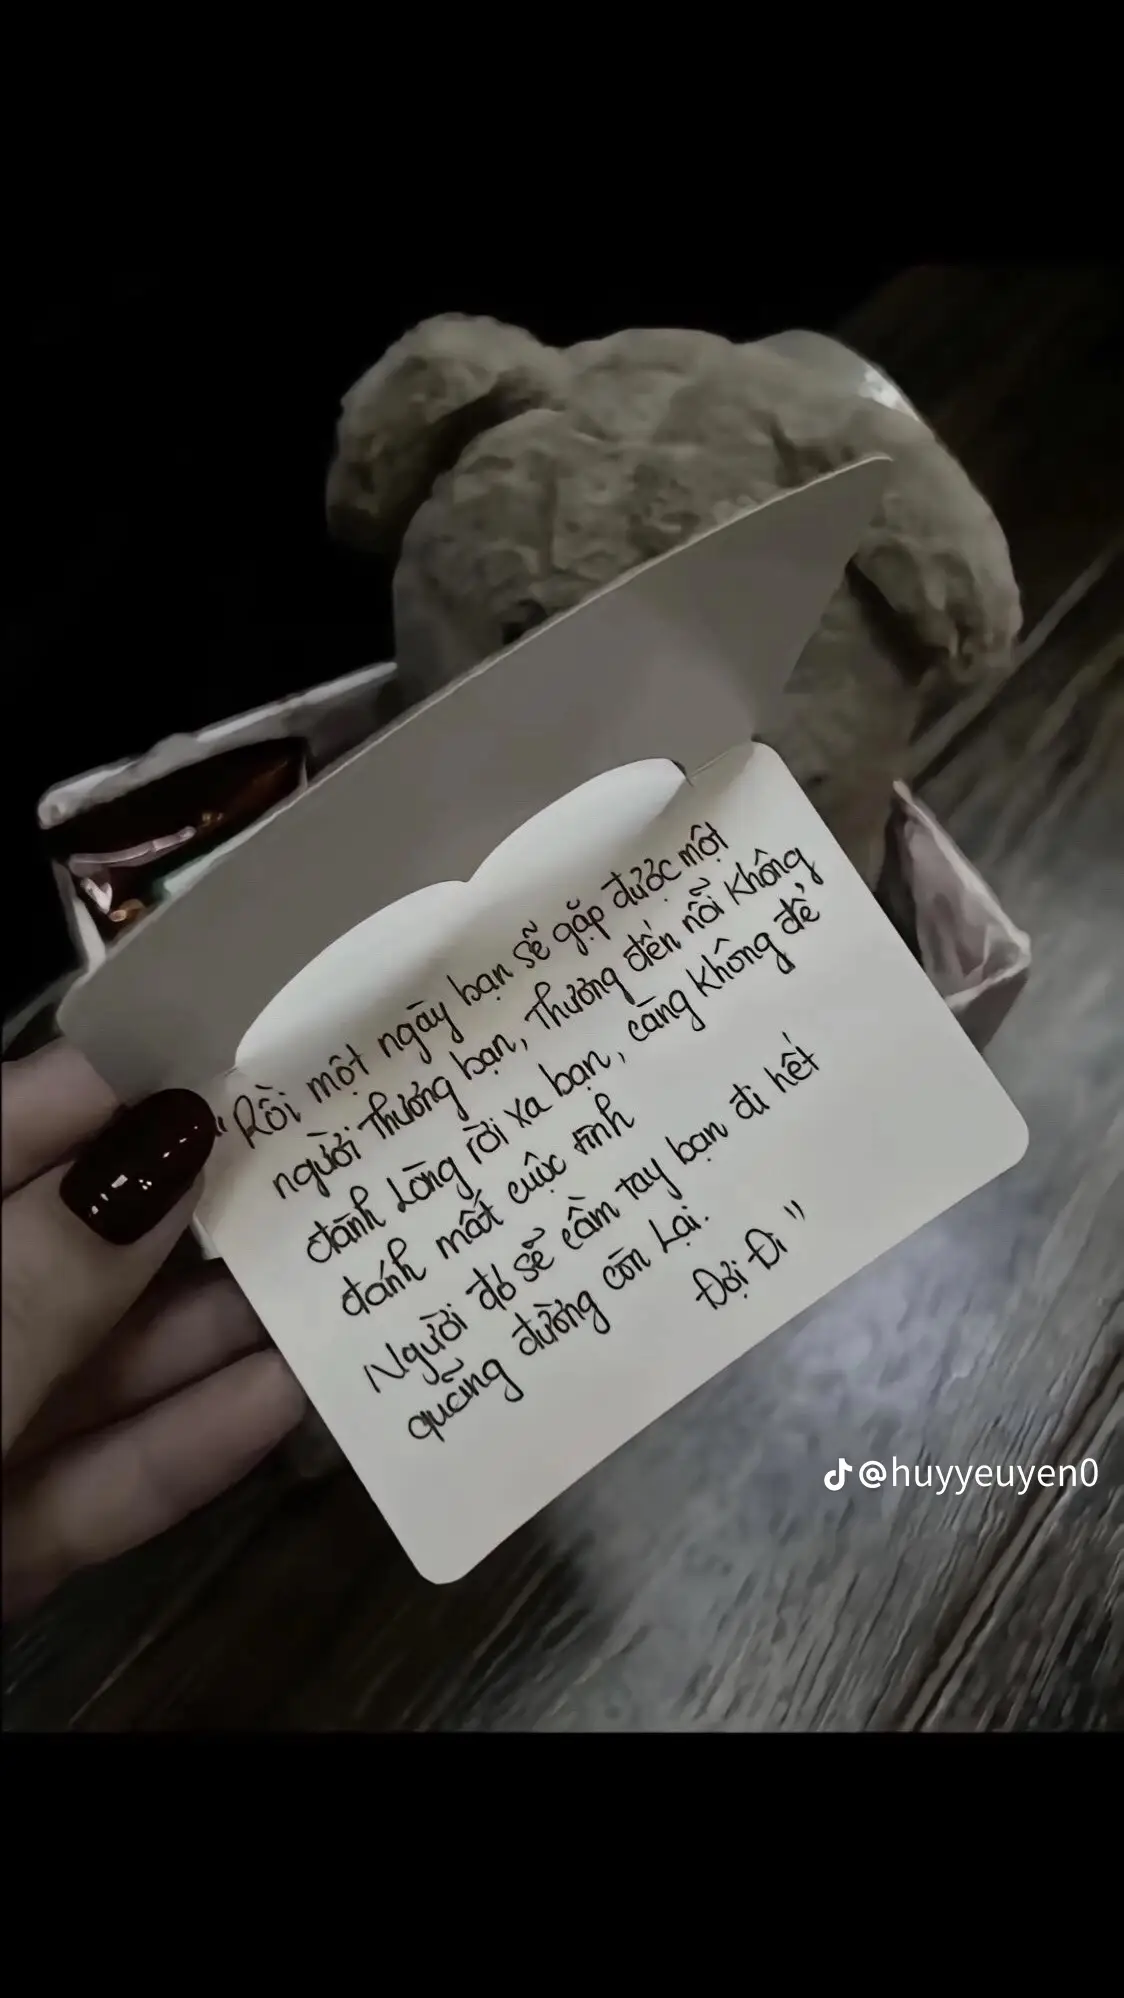 "Rồi một ngày bạn sẽ gặp được một
người Thương bạn, Thương đến nỗi không
đành Lòng rời xa bạn, càng không để
đánh mất cuộc tình
Người đó sẽ cầm tay bạn đi hết
quãng đường còn Lại.
Đợi Đi"
@huyyeuyen0